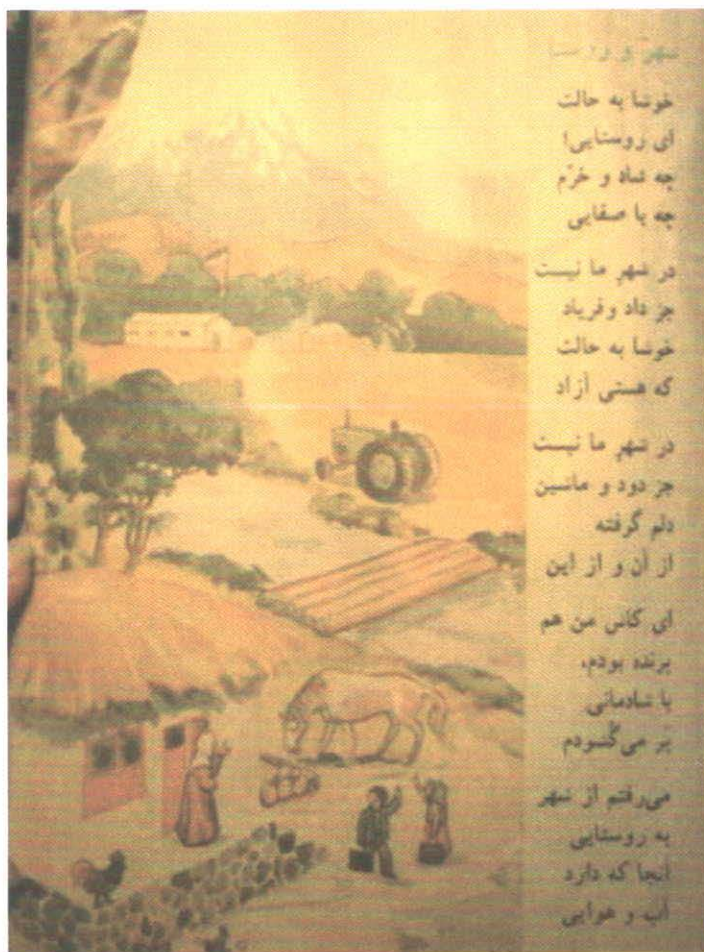 شهر و روستا
خوشا به حالت
ای روستایی!
چه شاد و خرّم
چه با صفایی
در شهرِ ما نیست
جز داد و فریاد
خوشا به حالت
که هستی آزاد
در شهرِ ما نیست
جز دود و ماشین
دلم گرفته
از آن و از این
ای کاش من هم
پرنده بودم،
با شادمانی
پَر می‌گشودم
می‌رفتم از شهر
به روستایی
آنجا که دارد
آب و هوایی